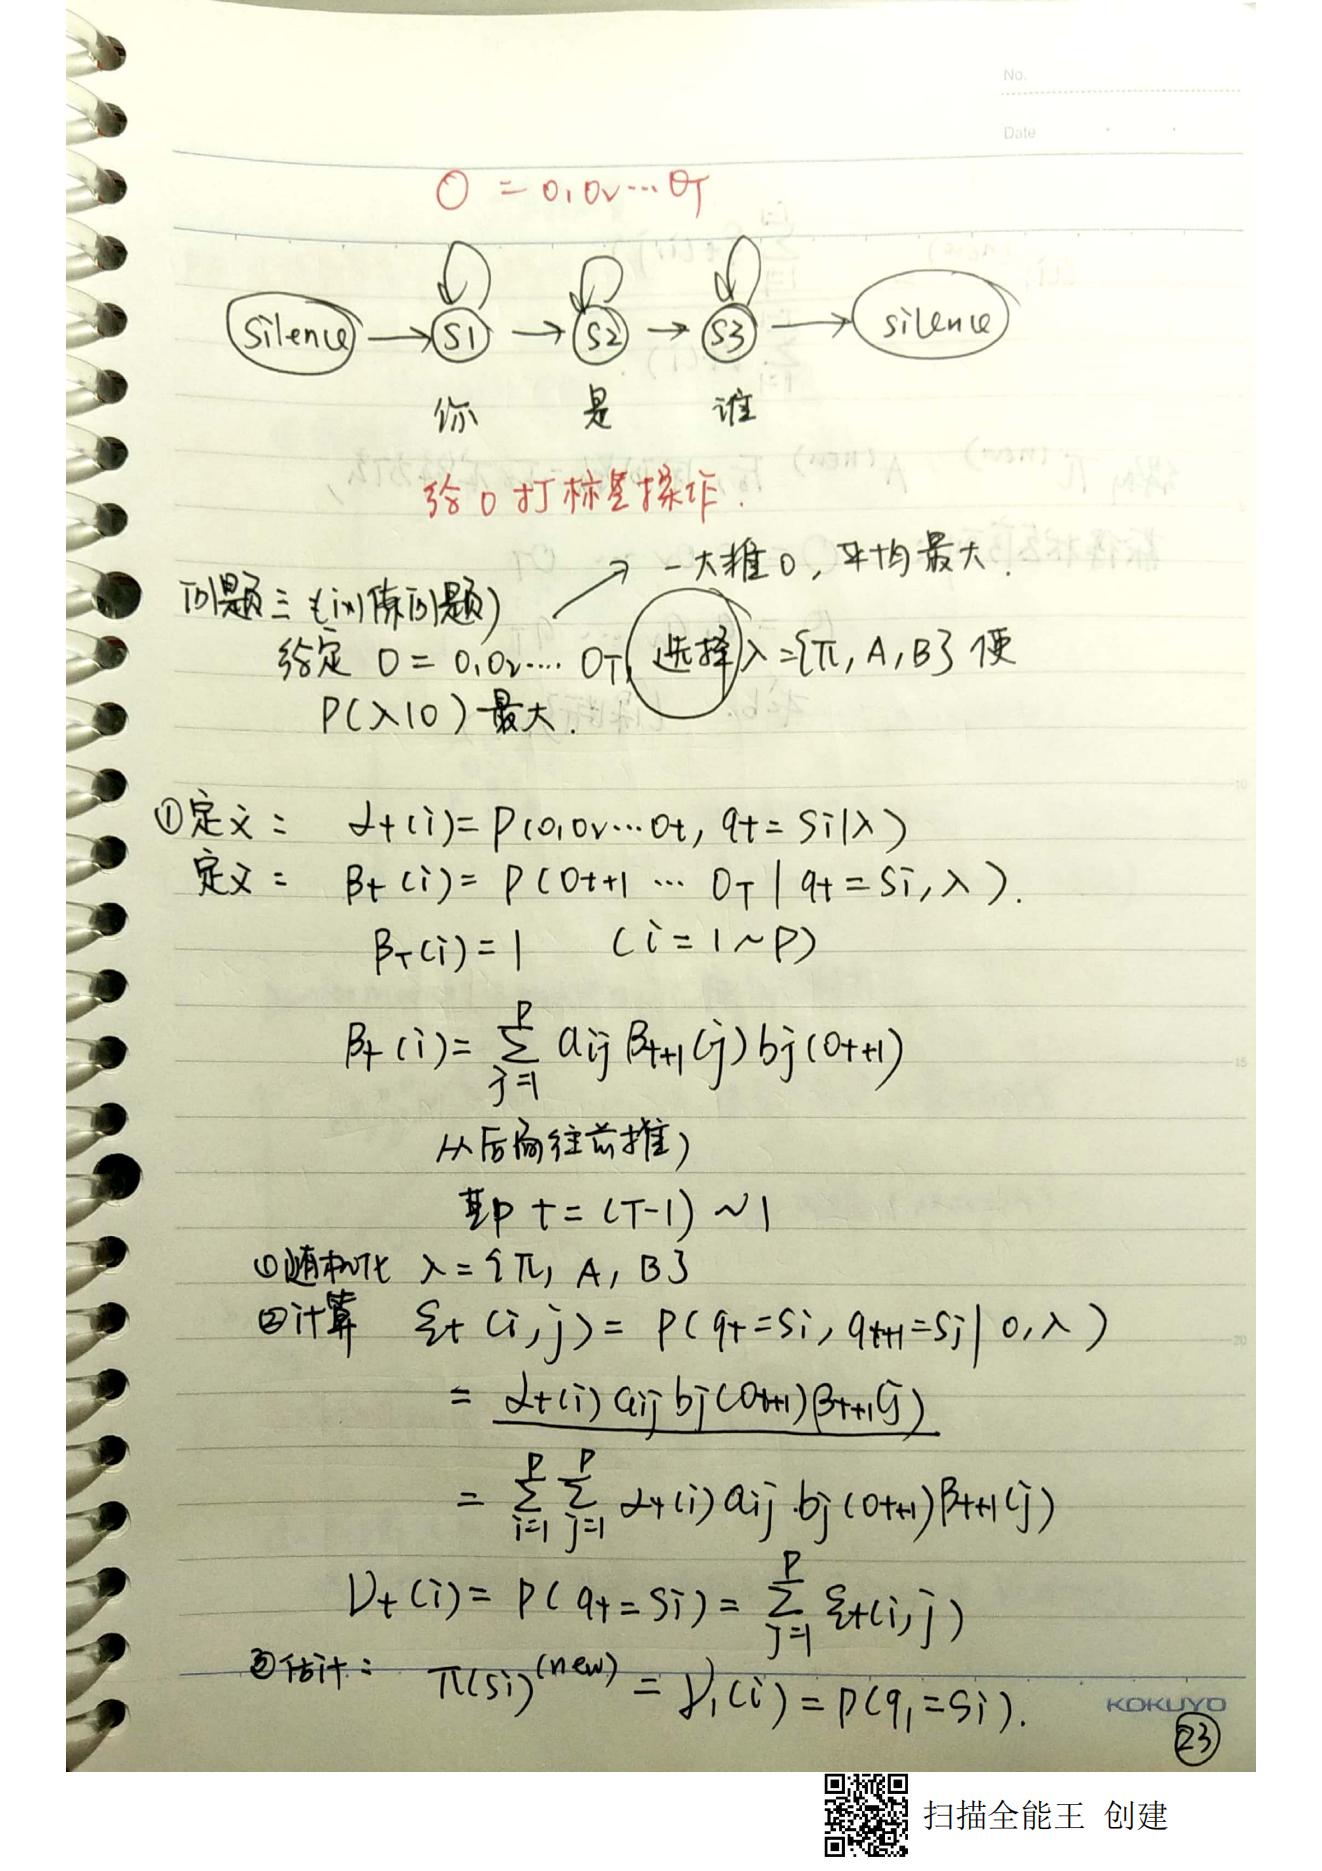 No.
Date
O = O₁O₂…O_T
silence → S1 → S2 → S3 → silence
你 是 谁
给O打标签操作.
→ 一大堆O，平均最大.
问题三：(训练问题)
给定 O = O₁O₂…. O_T, 选择 λ={π, A, B} 使
P(λ|O) 最大.
①定义： α_t(i) = P(O₁O₂…O_t, q_t = Si|λ)
定义： β_t(i) = P(O_{t+1} … O_T | q_t = Si, λ).
β_T(i) = 1 (i = 1~P)
β_t(i) = ∑_{j=1}^{P} a_ij β_{t+1}(j) b_j(O_{t+1})
从后向往前推)
即 t = (T-1) ~ 1
①随机化 λ = {π, A, B}
②计算 ξ_t(i, j) = P(q_t = Si, q_{t+1} = Sj | O, λ)
= α_t(i) a_ij b_j(O_{t+1}) β_{t+1}(j)
= ∑_{i=1}^{P} ∑_{j=1}^{P} α_t(i) a_ij b_j(O_{t+1}) β_{t+1}(j)
γ_t(i) = P(q_t = Si) = ∑_{j=1}^{P} ξ_t(i, j)
③估计： π(Si)^(new) = γ₁(i) = P(q₁ = Si).
KOKUYO
23
扫描全能王 创建